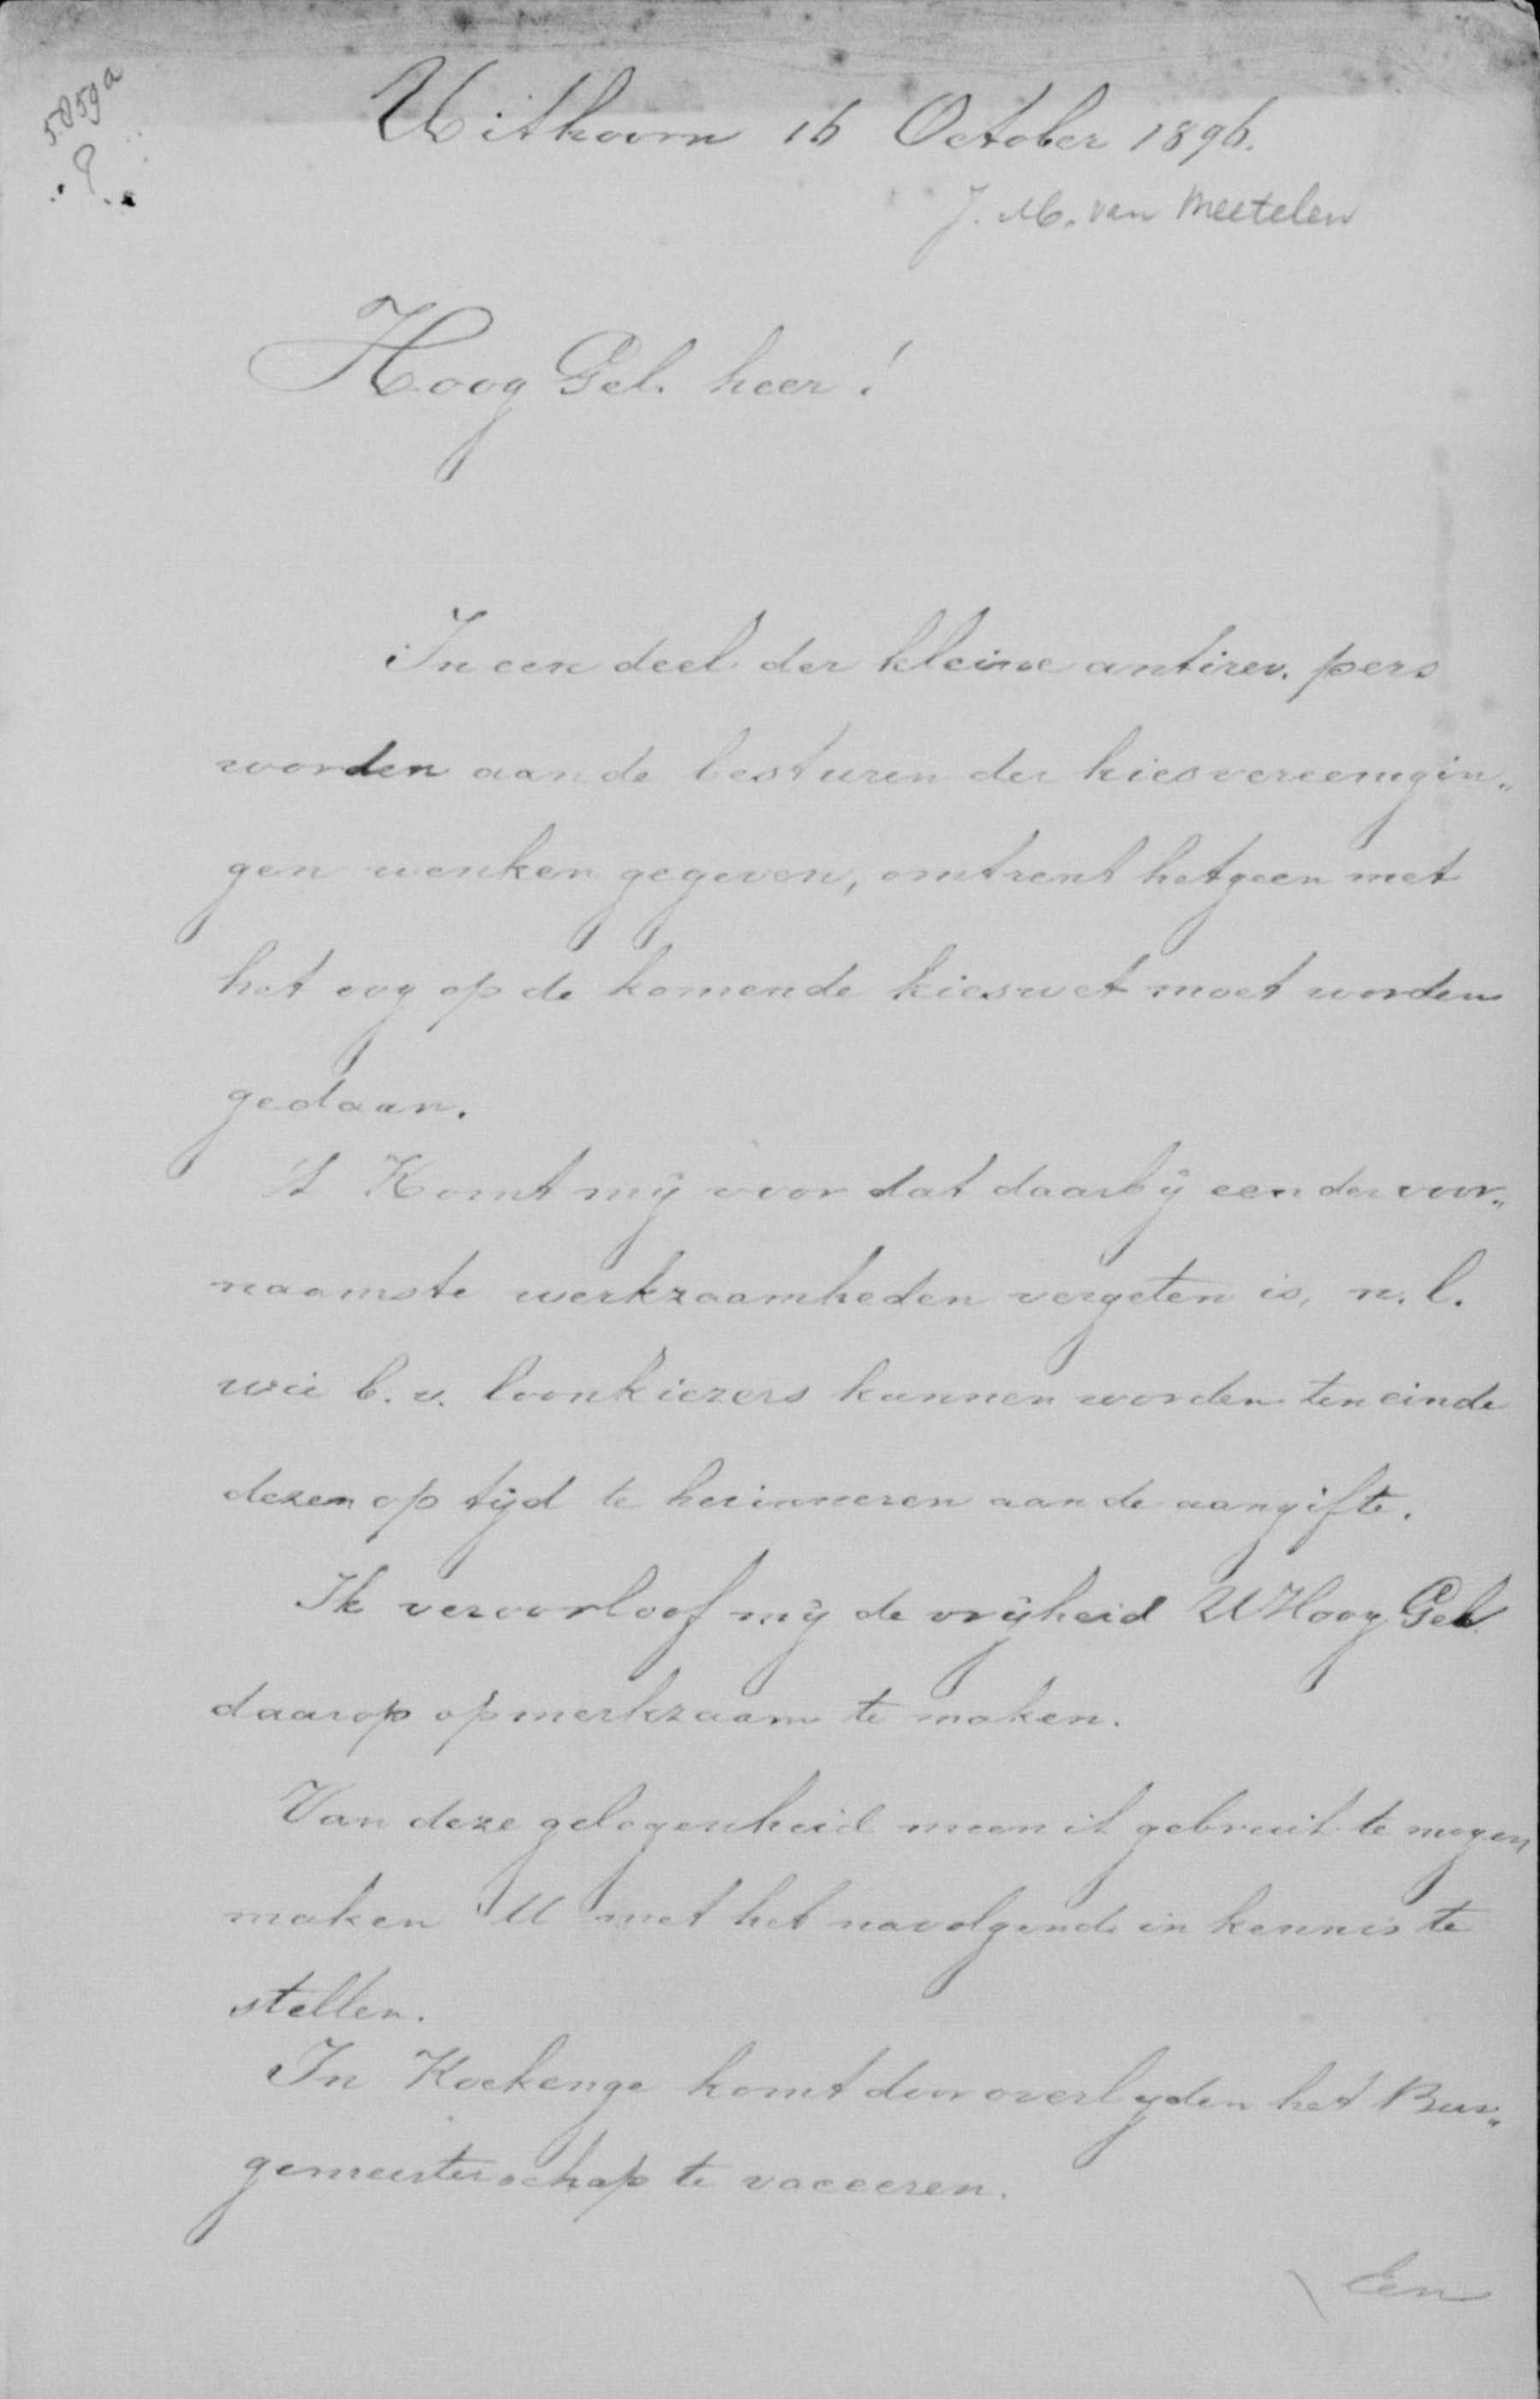 5859a
Uithoorn 16 October 1896.
J. M. van Meetelen
Hoog Gel. heer!
In een deel der kleine antirev. pers
worden aan de besturen der kiesvereenigin„
gen wenken gegeven, omtrent hetgeen met
het oog op de komende kieswet moet worden
gedaan.
't Komt mij voor dat daarbij een der voor„
naamste werkzaamheden vergeten is, n.l.
wie b.v. loonkiezers kunnen worden ten einde
dezen op tijd te herinneren aan de aangifte.
Ik veroorloof mij de vrijheid UHoog Gel.
daarop opmerkzaam te maken.
Van deze gelegenheid meen ik gebruik te mogen
maken U met het navolgende in kennis te
stellen.
In Kockenge komt door overlijden het Bur„
gemeesterschap te vaceeren.
Een